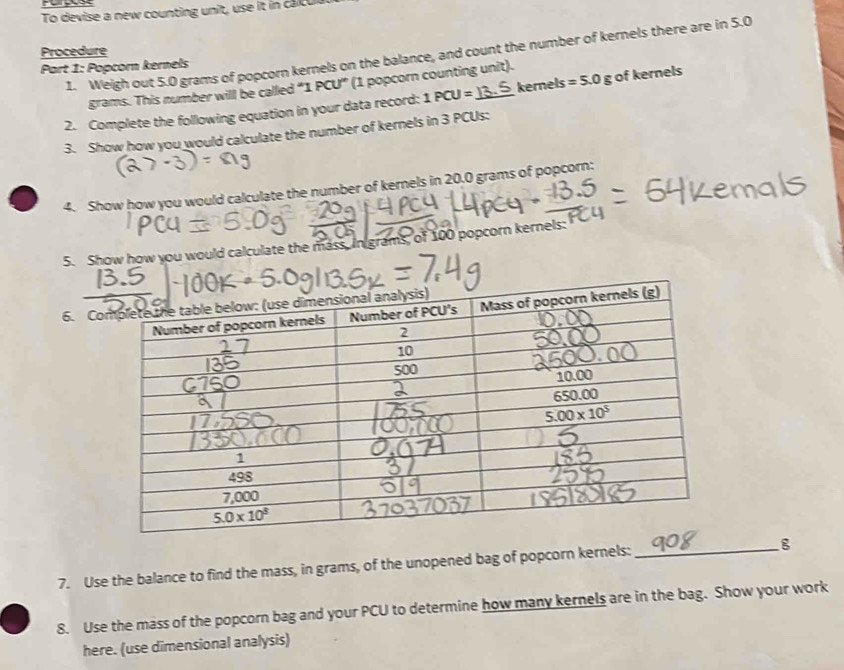 Purpose
To devise a new counting unit, use it in
Procedure
Part 1: Popcorn kernels
1. Weigh out 5.0 grams of popcorn kernels on the balance, and count the number of kernels there are in 5.0
grams. This number will be called "1 PCU" (1 popcorn counting unit).
2. Complete the following equation in your data record: 1 PCU = 13.5 kernels = 5.0 g of kernels
3. Show how you would calculate the number of kernels in 3 PCUs:
(27 - 3) = 81g
4. Show how you would calculate the number of kernels in 20.0 grams of popcorn:
1 PCU = 5.0g 20g 4 PCU 4 PCU · 13.5 = 54 Kernals
5.0g 20.0g PCU
5. Show how you would calculate the mass, in grams, of 100 popcorn kernels:
13.5 100K · 5.0g 13.5K = 7.4g
5.0g
6. Complete the table below: (use dimensional analysis)
Number of popcorn kernels Number of PCU's Mass of popcorn kernels (g)
27 2 10.00
135 10 50.00
6750 500 2500.00
27 2 10.00
17,550 650.00
1350,000 100,000 5.00 x 10⁵
1 0.074 5
498 37 185
7,000 519 2595
5.0 x 10⁸ 37037037 185185185
7. Use the balance to find the mass, in grams, of the unopened bag of popcorn kernels: 908 g
8. Use the mass of the popcorn bag and your PCU to determine how many kernels are in the bag. Show your work
here. (use dimensional analysis)